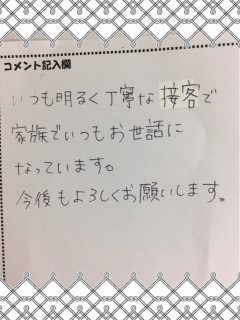 コメント記入欄
いつも明るく丁寧な接客で
家族でいつもお世話に
なっています。
今後もよろしくお願いします。